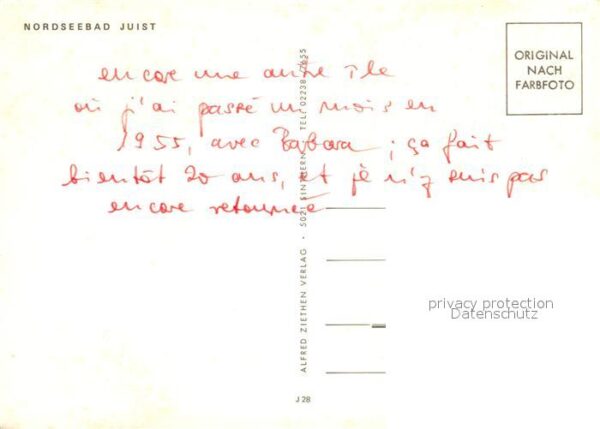 NORDSEEBAD JUIST
ORIGINAL
NACH
FARBFOTO
encore une autre île
où j'ai passé un mois en
1955, avec Barbara ; ça fait
bientôt 20 ans, et je n'y suis pas
encore retournée
ALFRED ZIETHEN VERLAG · 5021 SINTHERN · TEL. 02238/7655
privacy protection
Datenschutz
J 28